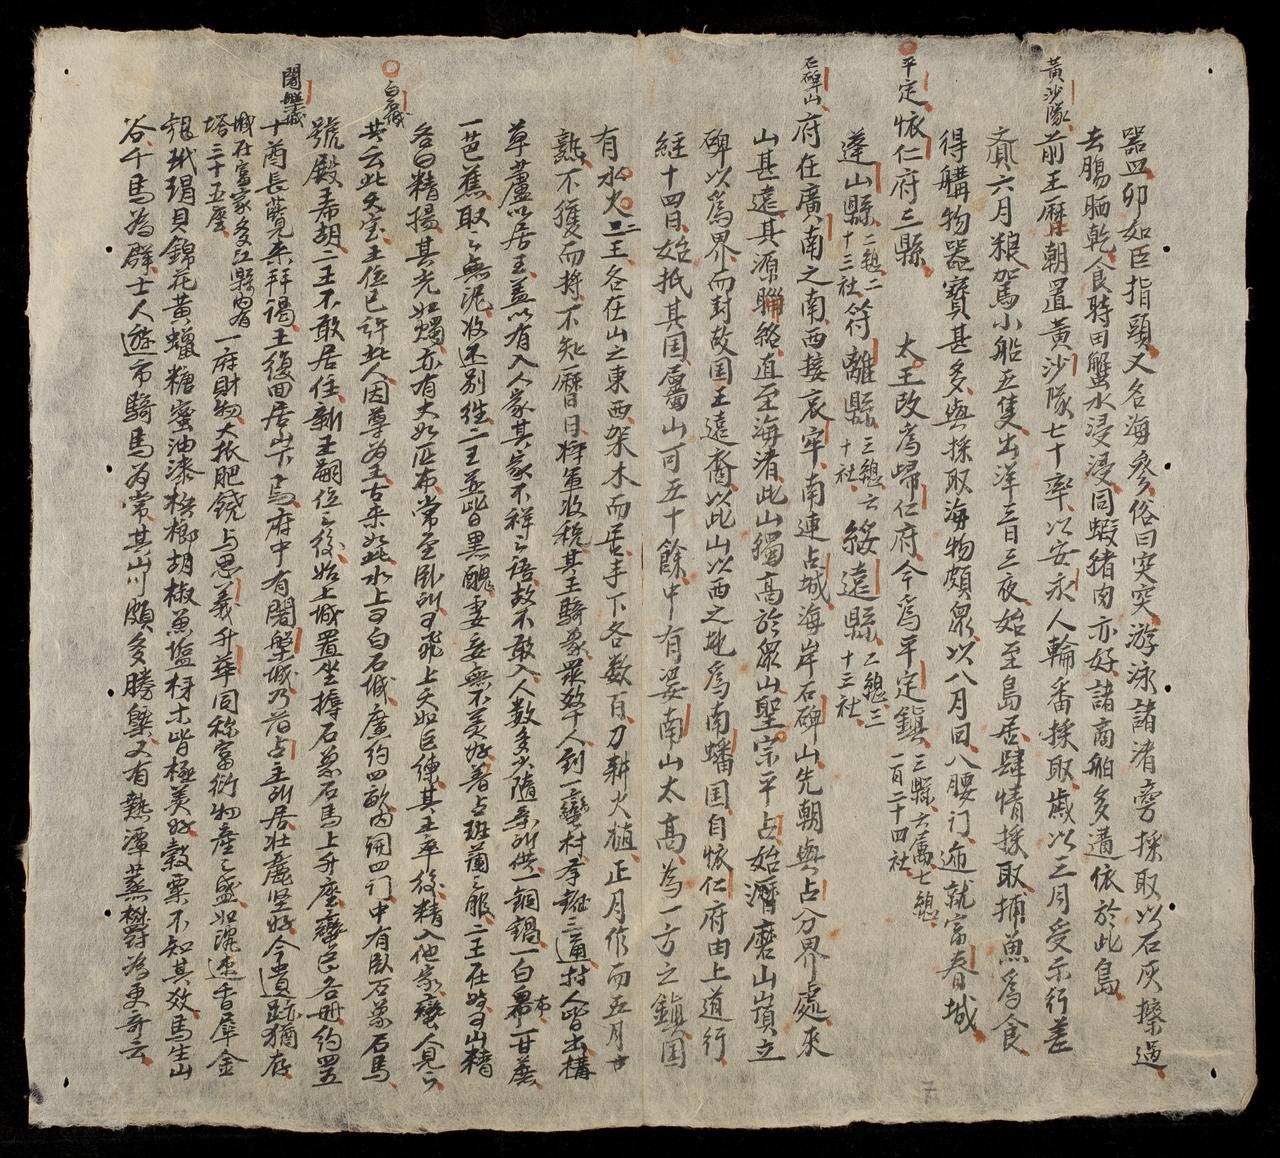 器皿卵如巨指頭又名海參俗曰突突游泳諸渚旁採取以石灰擦過
去腸晒乾食時田蟹水浸浸同蝦猪肉亦好諸商舶多遭依於此島
黃沙隊
前王曆朝置黃沙隊七十率以安永人輪番採取歲以三月受示行差
齎六月粮駕馬小船五隻出洋三日三夜始至島居肆情採取捕魚為食
得購物器寶甚多與採取海物頗衆以八月回入腰门逓就富春城
平定
懷仁府三縣 太王改為歸仁府今為平定鎮三縣六屬七總一百二十四社
蓬山縣二總二十三社符離縣三總六十社綏遠縣二總三十三社
石碑山
府在廣南之南西接哀牢南連占城海岸石碑山先朝與占分界處來
山甚遠其源聯絡直至海渚此山獨高於衆山聖宗平占始濟磨山嵿立
碑以為界而封故国王遠裔以此山以西之地為南蟠国自懷仁府由上道行
經十四日始抵其国屬山可五十餘中有婆南山太高為一方之鎮国
有水火二王各在山之東西架木而居手下各数百刀耕火植正月作而五月
熟不獲而将不知曆日将軍收税其王騎象眾数十人到一蠻村李雞三通村人皆出構
草蘆以居王盖以有入人家其家不祥之語故不敢入人数多少隨条所供一銅鍋一白帛布一甘蔗
一芭蕉取之無泥收还別徃二王並皆黒醜妻妾無不美好着占班蘭之服二王在時山精
各曰精揚其光如燭亦有大如匹布常至臥所飛上天如巨練其王卒後精入他家蠻人見
共云此火宝王位已許此人因尊為王古来如此水上白石城廣約四畝内開四门中有臥石象石馬
白城
號殿希胡二王不敢居住新王嗣位之後始上城置坐搏石象石馬上升座蠻邑各册約置五
闍槃城
十酋長藍见来拜謁王復田居山下下馬府中有闍槃城乃昔占主所居壯麗坚好今遺跡猶存
城在富家多江縣内有塔三十五座一府財物大抵肥饒与思義升華同称富衍物產之盛如沉速香犀金
銀玳瑁貝錦花黃蠟糖蜜油漆梹榔胡椒魚塩材木皆極美好穀粟不知其数馬生山
谷千馬為群士人遊市騎馬為常其山川頗多勝槩又有熱潭蒸欝為更奇云